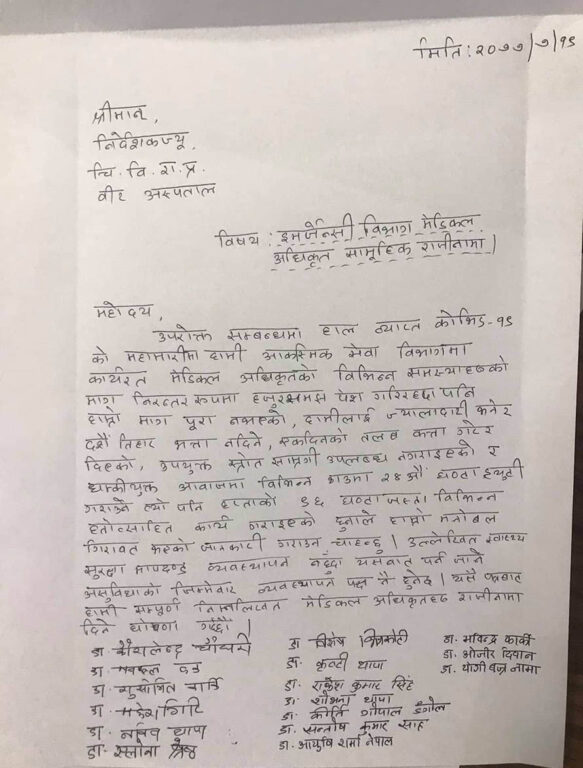 मिति: २०७७/७/१९
श्रीमान्,
निर्देशकज्यू,
चि. वि. रा. प्र.
वीर अस्पताल
विषय: इमर्जेन्सी विभाग मेडिकल
अधिकृत सामूहिक राजीनामा।
महोदय,
उपरोक्त सम्बन्धमा हाल व्याप्त कोभिड-१९
को महामारीमा हामी आकस्मिक सेवा विभागमा
कार्यरत मेडिकल अधिकृतको विभिन्न समस्याहरुको
माग निरन्तर रुपमा हजुरसमक्ष पेश गरिरहदा पनि
हाम्रो माग पुरा नभएको, हामीलाई ज्यालादारी भनेर
दशैं तिहार भत्ता नदिने, एकदिनको तलब कट्टा गरेर
दिएको, उपयुक्त स्रोत सामग्री उपलब्ध नगराइएको र
धम्कीयुक्त आवाजमा विभिन्न २४औं घण्टा ड्युटी
गराउने त्यो पनि हप्ताको ९६ घण्टा जस्ता विभिन्न
हतोत्साहित कार्य गराइएको हुनाले हाम्रो मनोबल
गिरावट भएको जानकारी गराउन चाहन्छु। उल्लेखित स्वास्थ्य
सुरक्षा मापदण्ड व्यवस्थापन नहुँदा यसबाट पर्न जाने
असुविधाको जिम्मेवार व्यवस्थापन पक्ष नै हुनेछ। यसै पत्रबाट
हामी सम्पूर्ण निम्नलिखित मेडिकल अधिकृतहरु राजीनामा
दिने घोषणा गर्दछौं।
डा. शैलेन्द्र चौधरी
डा.
डा. सुशोभित
डा. महेश गिरि
डा. थापा
डा. श्रेष्ठ
डा. विशेष
डा. कुन्ती थापा
डा. राकेश कुमार सिंह
डा. शोभना थापा
डा. कीर्ति गोपाल डंगोल
डा. सन्तोष कुमार साह
डा. आयुषि शर्मा नेपाल
डा. भविन्द्र कार्की
डा. भोजीर दिवान
डा. योगी वज्र लामा